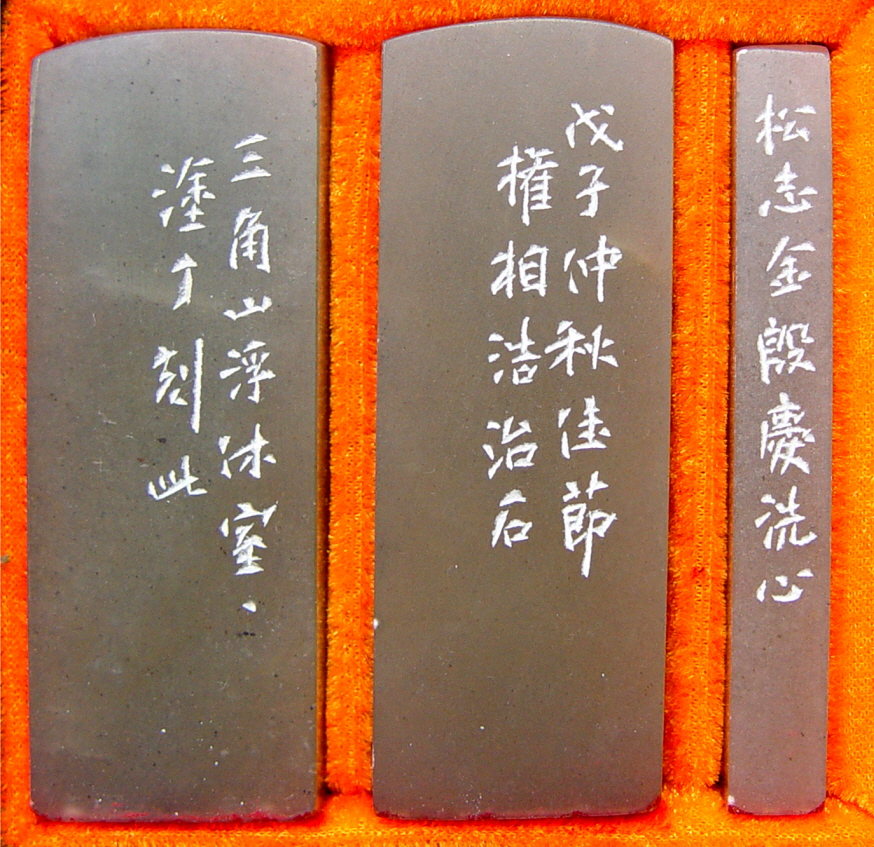 松志金殷慶洗心
戊子仲秋佳節
權相浩治石
三角山浮休室
塗丁刻此